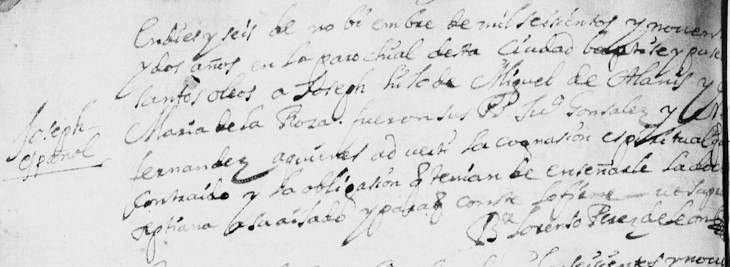 En dies y seis de nobiembre de mil seissientos y noven
y dos años en la parochial desta Ciudad baptise y puse
santos oleos a Joseph hijo de Miguel de Alanis y
Joseph
español
Maria de la Rosa. fueron sus PP. Ju.º Gonzalez y
fernandez a quienes adverti la cognasion espiritual
contraido y la obligasion q tenian de enseñarle la do
xptiana a su aijado y para q conste lo firme
B.r Lorenso Peres de Leon